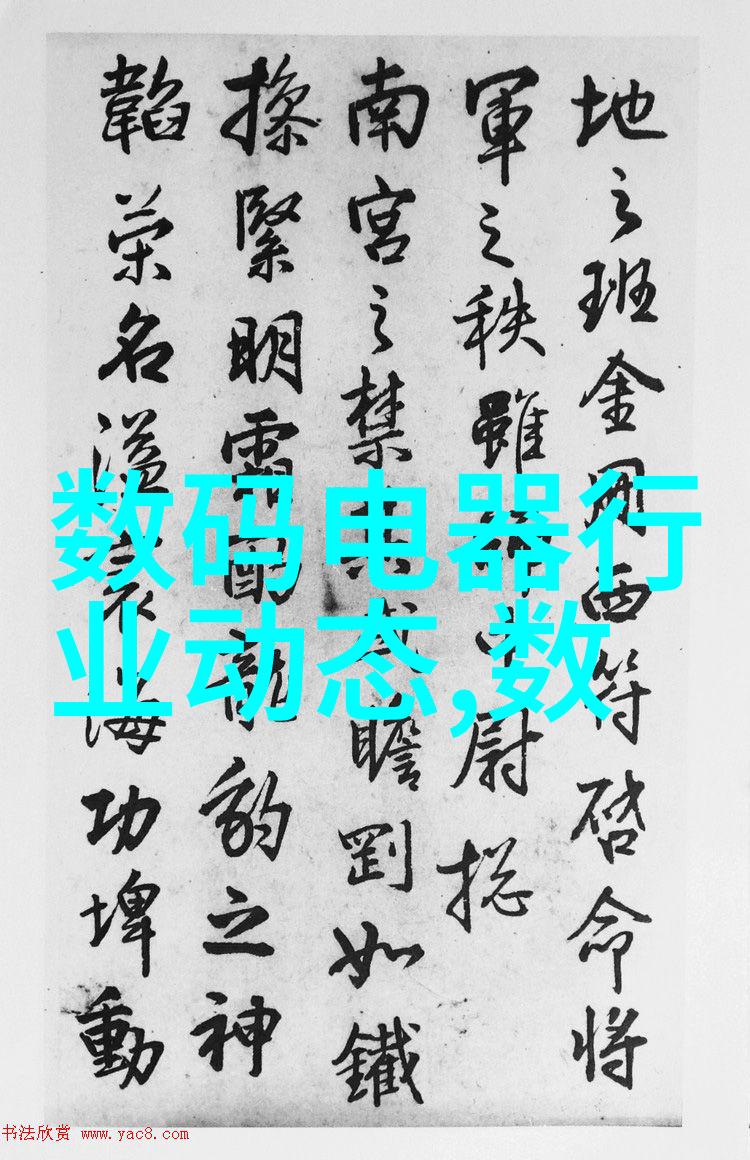 地之班金西符啓命将
軍之秩雖尉揔
南宮之禁瞻如鐵
操緊明霜豹之神
韜榮名溢寰海功埤動
数码电器行
业动态,数
书法欣赏 www.yac8.com